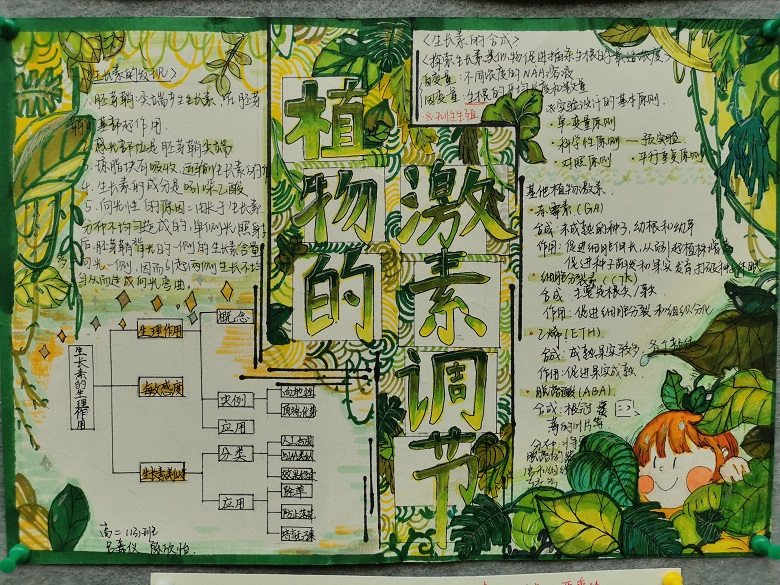 〈生长素的发现〉
1.胚芽鞘尖端产生生长素，在胚芽
鞘的基部起作用
2.感光部位是胚芽鞘尖端
3.琼脂块有吸收、运输生长素的作用
4.生长素的成分是吲哚乙酸
5.向光性的原因：由于生长素
分布不均匀造成的，单侧光照射
后，胚芽鞘背光的一侧的生长素含量
向光一侧，因而引起两侧生长不均
匀从而造成向光弯曲。
植物的
激素调节
〈生长素的合成〉
〈探索生长素类似物促进插条生根的最适浓度〉
自变量：不同浓度的NAA溶液
因变量：生根的平均长度和数量
※无性生殖
※实验设计的基本原则
·单变量原则
·科学性原则——预实验
·对照原则 ·平行重复原则
其他植物激素
·赤霉素(GA)
合成：未成熟的种子、幼根和幼芽
作用：促进细胞伸长，从而引起植株增高
促进种子萌发和果实发育打破种子休眠
·细胞分裂素(CTK)
合成 主要是根尖
作用：促进细胞分裂和组织分化
·乙烯(ETH)
合成：成熟果实较多
作用：促进果实成熟
·脱落酸(ABA)
合成：根冠 萎
蔫的叶片等
生长素的生理作用
生理作用
概念
敏感度
实例
应用
分类
人工合成
应用
防止落花
高二(13)班